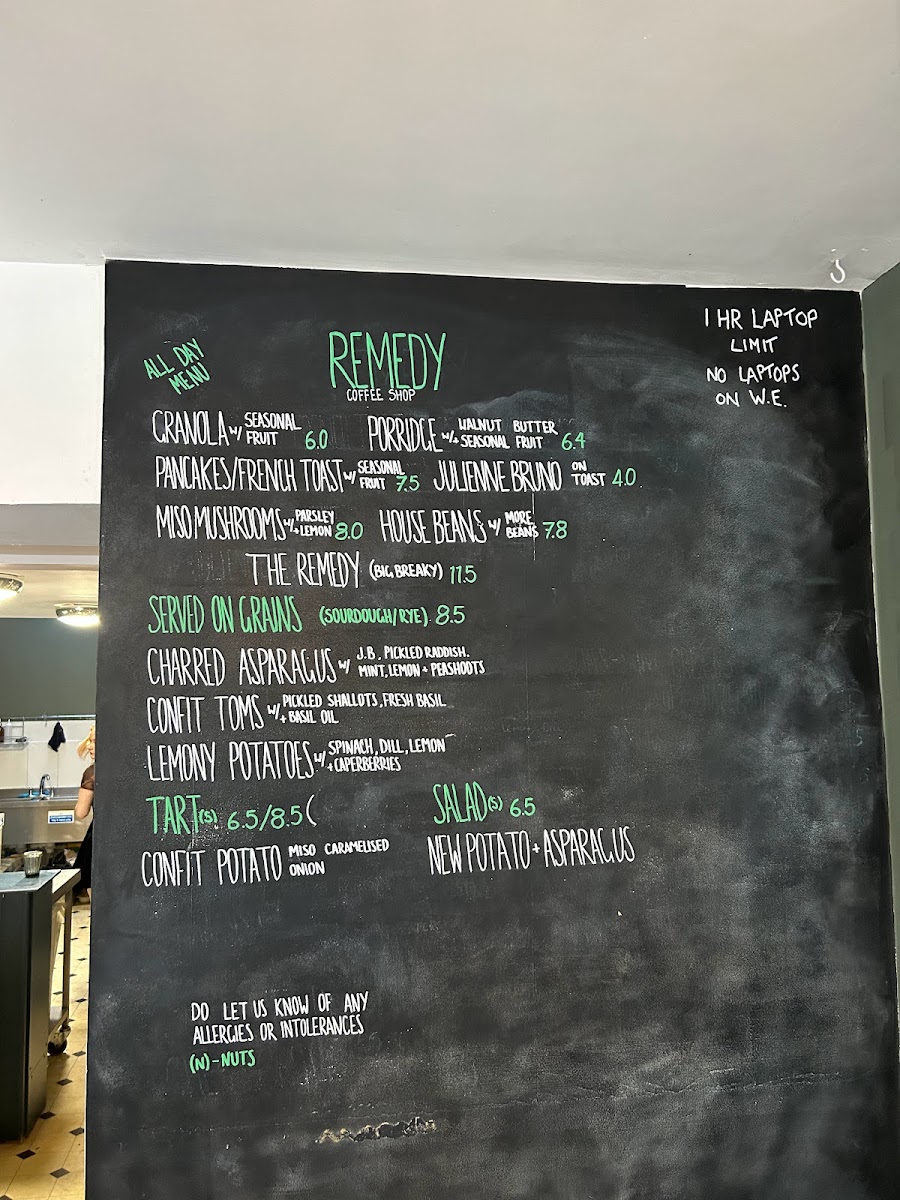 1 HR LAPTOP
LIMIT
NO LAPTOPS
ON W.E.
ALL DAY
MENU
REMEDY
COFFEE SHOP
GRANOLA W/ SEASONAL FRUIT 6.0 PORRIDGE W/+ WALNUT BUTTER SEASONAL FRUIT 6.4
PANCAKES/FRENCH TOAST W/ SEASONAL FRUIT 7.5 JULIENNE BRUNO ON TOAST 4.0
MISO MUSHROOMS W/+ PARSLEY LEMON 8.0 HOUSE BEANS W/ MORE BEANS 7.8
THE REMEDY (BIG BREAKY) 11.5
SERVED ON GRAINS (SOURDOUGH/RYE) 8.5
CHARRED ASPARAGUS W/ J.B. PICKLED RADDISH. MINT, LEMON + PEASHOOTS
CONFIT TOMS W/ PICKLED SHALLOTS, FRESH BASIL + BASIL OIL
LEMONY POTATOES W/ SPINACH, DILL, LEMON + CAPERBERRIES
TART(S) 6.5/8.5 ( SALAD(S) 6.5
CONFIT POTATO MISO CARAMELISED ONION NEW POTATO + ASPARAGUS
DO LET US KNOW OF ANY
ALLERGIES OR INTOLERANCES
(N)-NUTS